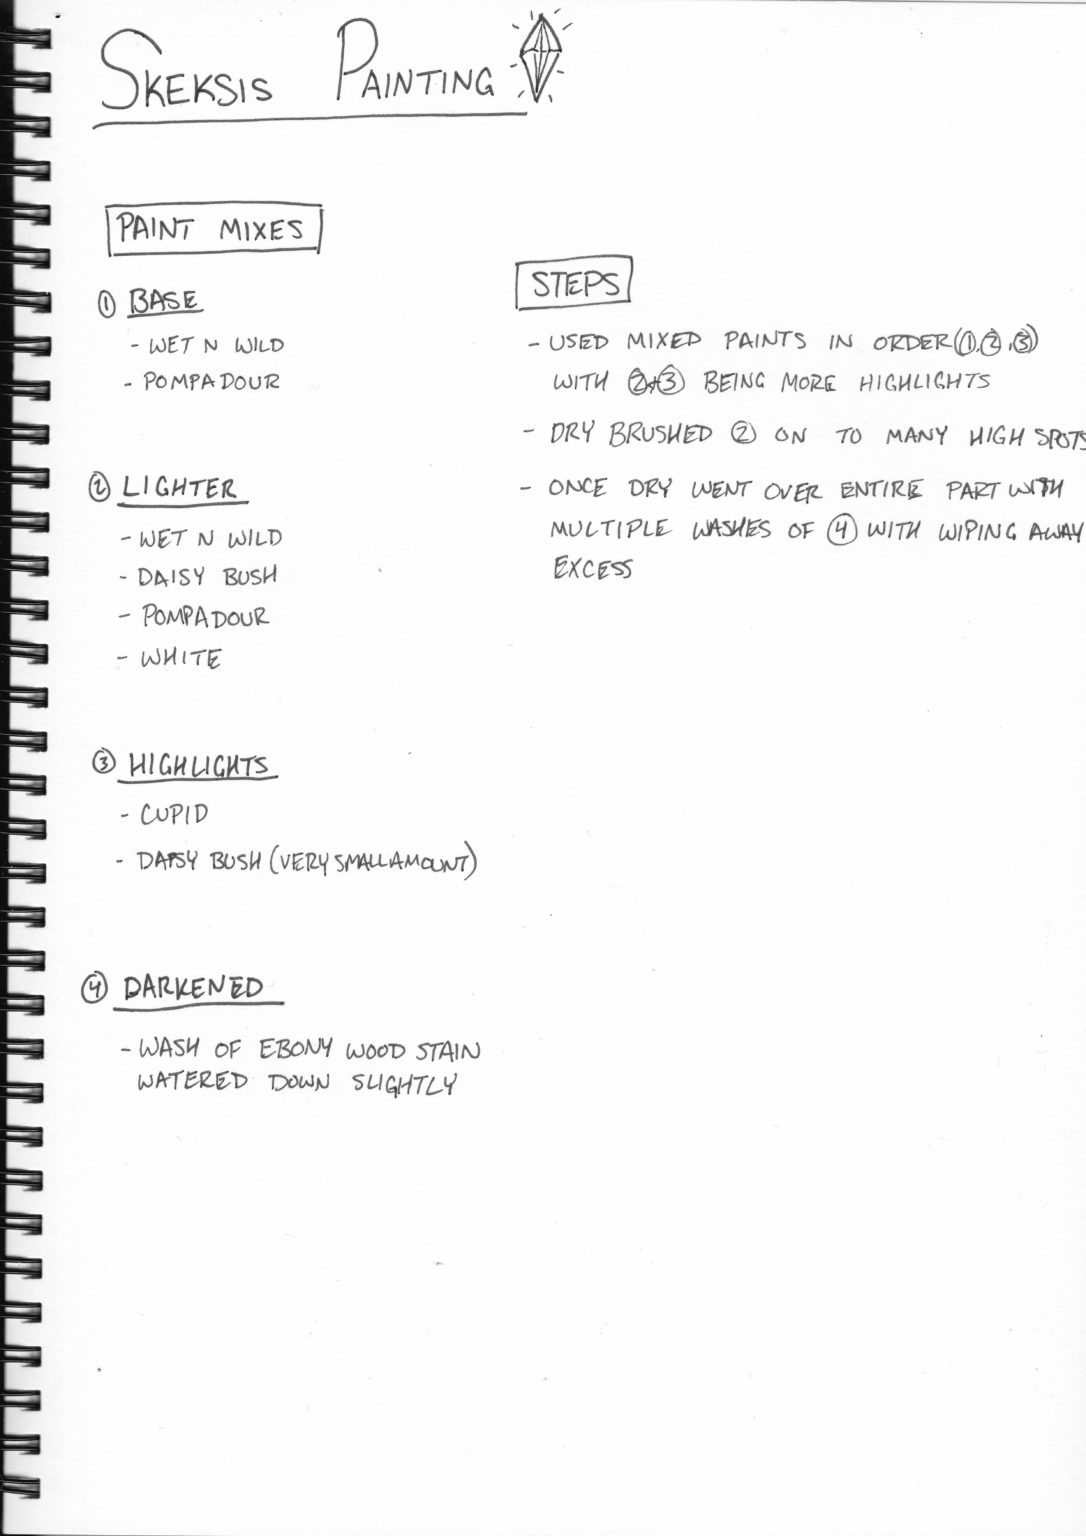 SKEKSIS PAINTING
PAINT MIXES
① BASE
- WET N WILD
- POMPADOUR
② LIGHTER
- WET N WILD
- DAISY BUSH
- POMPADOUR
- WHITE
③ HIGHLIGHTS
- CUPID
- DAISY BUSH (VERY SMALL AMOUNT)
④ DARKENED
- WASH OF EBONY WOOD STAIN
WATERED DOWN SLIGHTLY
STEPS
- USED MIXED PAINTS IN ORDER (①,②,③)
WITH ②+③ BEING MORE HIGHLIGHTS
- DRY BRUSHED ② ON TO MANY HIGH SPOTS
- ONCE DRY WENT OVER ENTIRE PART WITH
MULTIPLE WASHES OF ④ WITH WIPING AWAY
EXCESS